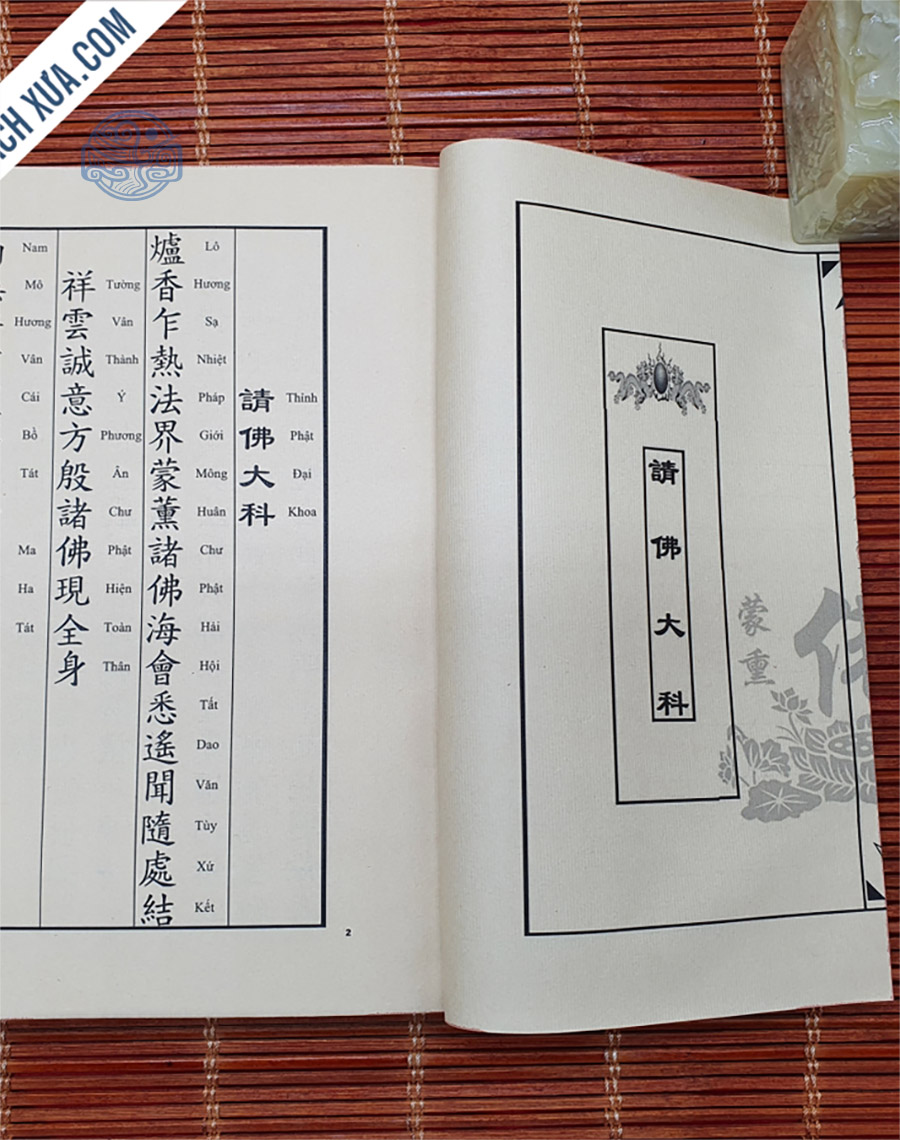 CH XƯA.COM
蒙熏
請佛大科
Thỉnh Phật Đại Khoa
請佛大科
Lô Hương Sạ Nhiệt Pháp Giới Mông Huân Chư Phật Hải Hội Tất Dao Văn Tùy Xứ Kết
爐香乍熱法界蒙薰諸佛海會悉遙聞隨處結
Tường Vân Thành Ý Phương Ân Chư Phật Hiện Toàn Thân
祥雲誠意方殷諸佛現全身
Nam Mô Hương Vân Cái Bồ Tát Ma Ha Tát
2